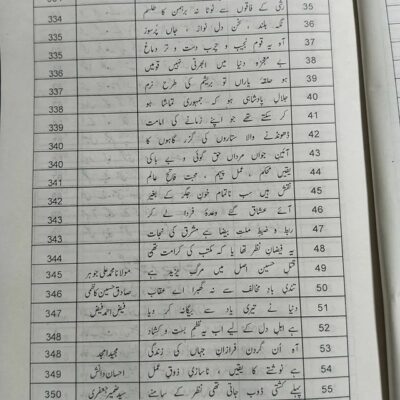 35 رشی کے فاقوں سے ٹوٹا نہ برہمن کا طلسم
36 نگہ بلند ، سخن دل نواز ، جاں پُرسوز 334
37 آہ یہ قوم نجیب و چرب دست و تر دماغ 335
38 بے معجزہ دنیا میں ابھرتی نہیں قومیں 336
39 ہو حلقۂ یاراں تو بریشم کی طرح نرم 337
40 جلالِ پادشاہی ہو کہ جمہوری تماشا ہو 338
41 کر سکتے تھے جو اپنے زمانے کی امامت 339
42 ڈھونڈنے والا ستاروں کی گزر گاہوں کا 339
43 آئین جواں مرداں حق گوئی و بے باکی 340
44 یقیں محکم ، عمل پیہم ، محبت فاتح عالم 341
45 نقش ہیں سب ناتمام خون جگر کے بغیر 341
46 آئے عشاق گئے وعدۂ فردا لے کر 342
47 ربط و ضبط ملت بیضا ہے مشرق کی نجات 343
48 یہ فیضانِ نظر تھا یا کہ مکتب کی کرامت تھی 343
49 قتل حسین اصل میں مرگ یزید ہے مولانا محمد علی جوہر 345
50 تندی باد مخالف سے نہ گھبرا اے عقاب صادق حسین کاظمی 346
51 دنیا نے تیری یاد سے بیگانہ کر دیا فیض احمد فیض 347
52 ہے اہل دل کے لیے اب یہ نظم بست و کشاد 348
53 آہ اُن گردن فرازانِ جہاں کی زندگی مجید امجد 348
54 ہے نوشتے کا یقیں ، ناسازی ذوق عمل احسان دانش 349
55 پہلے کشتی ڈوب جاتی تھی نظر کے سامنے سید ضمیر جعفری 350